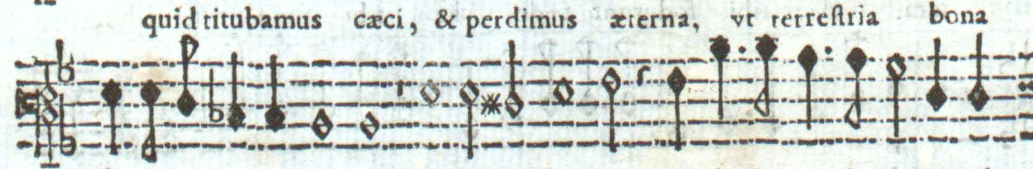 quid titubamus cæci, & perdimus æterna, vt terreſtria bona